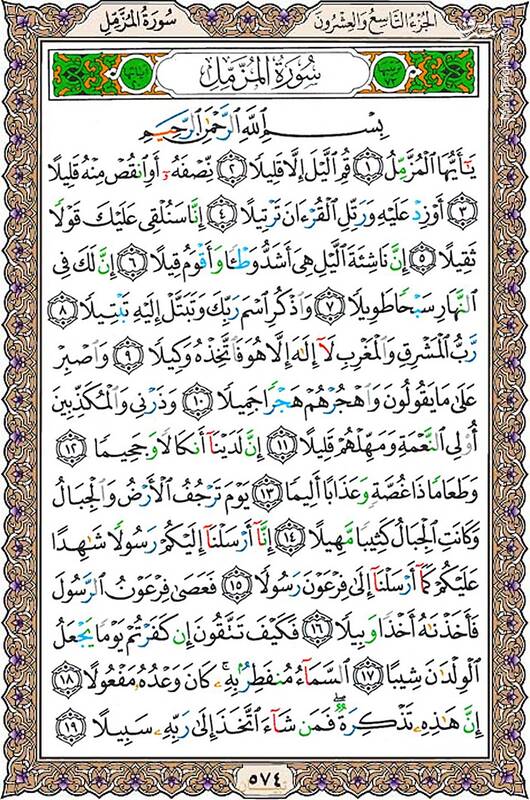 الجُزءُ التَّاسِعُ وَالعِشرُونَ سُورَةُ المُزَّمِّل
سُورَةُ المُزَّمِّلِ
بِسْمِ ٱللَّهِ ٱلرَّحْمَٰنِ ٱلرَّحِيمِ
يَٰٓأَيُّهَا ٱلْمُزَّمِّلُ ١ قُمِ ٱلَّيْلَ إِلَّا قَلِيلًا ٢ نِّصْفَهُۥٓ أَوِ ٱنقُصْ مِنْهُ قَلِيلًا
٣ أَوْ زِدْ عَلَيْهِ وَرَتِّلِ ٱلْقُرْءَانَ تَرْتِيلًا ٤ إِنَّا سَنُلْقِى عَلَيْكَ قَوْلًا
ثَقِيلًا ٥ إِنَّ نَاشِئَةَ ٱلَّيْلِ هِىَ أَشَدُّ وَطْـًٔا وَأَقْوَمُ قِيلًا ٦ إِنَّ لَكَ فِى
ٱلنَّهَارِ سَبْحًا طَوِيلًا ٧ وَٱذْكُرِ ٱسْمَ رَبِّكَ وَتَبَتَّلْ إِلَيْهِ تَبْتِيلًا ٨
رَّبُّ ٱلْمَشْرِقِ وَٱلْمَغْرِبِ لَآ إِلَٰهَ إِلَّا هُوَ فَٱتَّخِذْهُ وَكِيلًا ٩ وَٱصْبِرْ
عَلَىٰ مَا يَقُولُونَ وَٱهْجُرْهُمْ هَجْرًا جَمِيلًا ١٠ وَذَرْنِى وَٱلْمُكَذِّبِينَ
أُو۟لِى ٱلنَّعْمَةِ وَمَهِّلْهُمْ قَلِيلًا ١١ إِنَّ لَدَيْنَآ أَنكَالًا وَجَحِيمًا ١٢
وَطَعَامًا ذَا غُصَّةٍ وَعَذَابًا أَلِيمًا ١٣ يَوْمَ تَرْجُفُ ٱلْأَرْضُ وَٱلْجِبَالُ
وَكَانَتِ ٱلْجِبَالُ كَثِيبًا مَّهِيلًا ١٤ إِنَّآ أَرْسَلْنَآ إِلَيْكُمْ رَسُولًا شَٰهِدًا
عَلَيْكُمْ كَمَآ أَرْسَلْنَآ إِلَىٰ فِرْعَوْنَ رَسُولًا ١٥ فَعَصَىٰ فِرْعَوْنُ ٱلرَّسُولَ
فَأَخَذْنَٰهُ أَخْذًا وَبِيلًا ١٦ فَكَيْفَ تَتَّقُونَ إِن كَفَرْتُمْ يَوْمًا يَجْعَلُ
ٱلْوِلْدَٰنَ شِيبًا ١٧ ٱلسَّمَآءُ مُنفَطِرٌۢ بِهِۦ ۚ كَانَ وَعْدُهُۥ مَفْعُولًا ١٨
إِنَّ هَٰذِهِۦ تَذْكِرَةٌ ۖ فَمَن شَآءَ ٱتَّخَذَ إِلَىٰ رَبِّهِۦ سَبِيلًا ١٩
٥٧٤